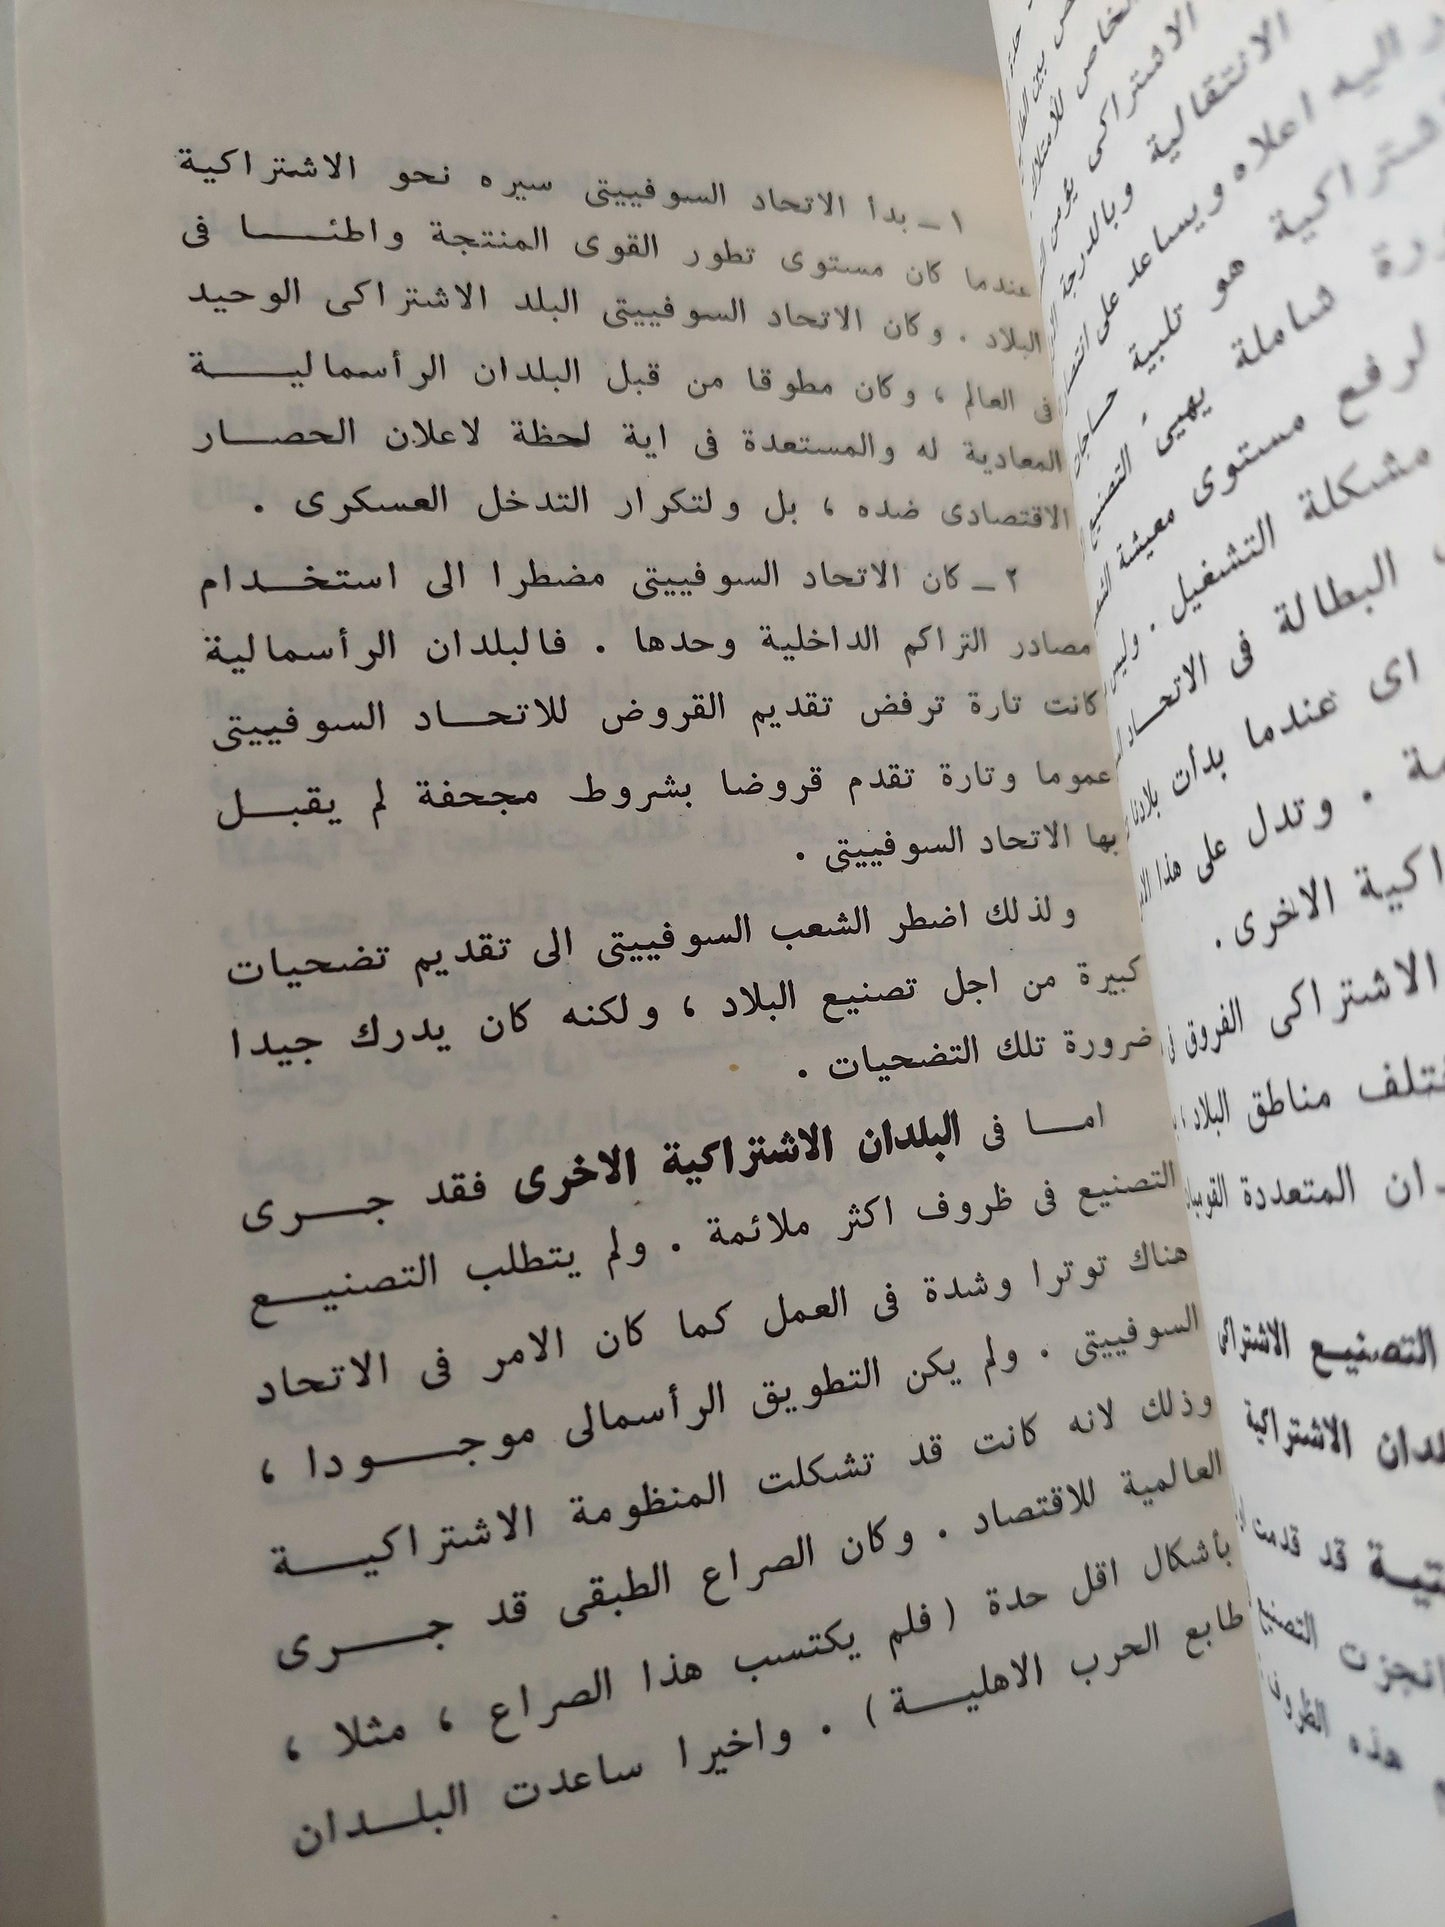 ١ ــ بدأ الاتحاد السوفييتى سيره نحو الاشتراكية
عندما كان مستوى تطور القوى المنتجة واطئــــا فى
البلاد . وكان الاتحاد السوفييتى البلد الاشتراكى الوحيد
فى العالم ، وكان مطوقا من قبل البلدان الرأسماليـــــة
المعادية له والمستعدة فى اية لحظة لاعلان الحصــــار
الاقتصادى ضده ، بل ولتكرار التدخل العسكرى .
٢ ــ كان الاتحاد السوفييتى مضطرا الى استخــــدام
مصادر التراكم الداخلية وحدها . فالبلدان الرأسمالية
كانت تارة ترفض تقديم القروض للاتحــــاد السوفييتى
عموما وتارة تقدم قروضا بشروط مجحفة لم يقبــــل
بها الاتحاد السوفييتى .
ولذلك اضطر الشعب السوفييتى الى تقديم تضحيات
كبيرة من اجل تصنيع البلاد ، ولكنه كان يدرك جيدا
ضرورة تلك التضحيات .
امــــا فى البلدان الاشتراكية الاخرى فقد جـــــرى
التصنيع فى ظروف اكثر ملائمة . ولم يتطلب التصنيــــع
هناك توترا وشدة فى العمل كما كان الامر فى الاتحاد
السوفييتى . ولم يكن التطويق الرأسمالى موجــــودا ،
وذلك لانه كانت قد تشكلت المنظومة الاشتراكيــــة
العالمية للاقتصاد . وكان الصراع الطبقى قد جـــــرى
بأشكال اقل حدة ( فلم يكتسب هذا الصراع ، مثلا ،
طابع الحرب الاهليــــة ) . واخيرا ساعدت البلــــدان
الاشتراكى يؤمن
الانتقالية وبالدرجة
اليه اعلاه ويساعد على
هو تلبية حاجات
شاملة يهيئ التصنيع
لرفع مستوى معيشة
مشكلة التشغيل . وليس
البطالة فى الاتحاد
اى عندما بدأت بلادنا
. وتدل على هذا
الاخرى .
الاشتراكى الفروق فى
مناطق البلاد ،
المتعددة القوميات
التصنيع الاشتراكى
الاشتراكية
قد قدمت
التصنيع
هذه الظروف